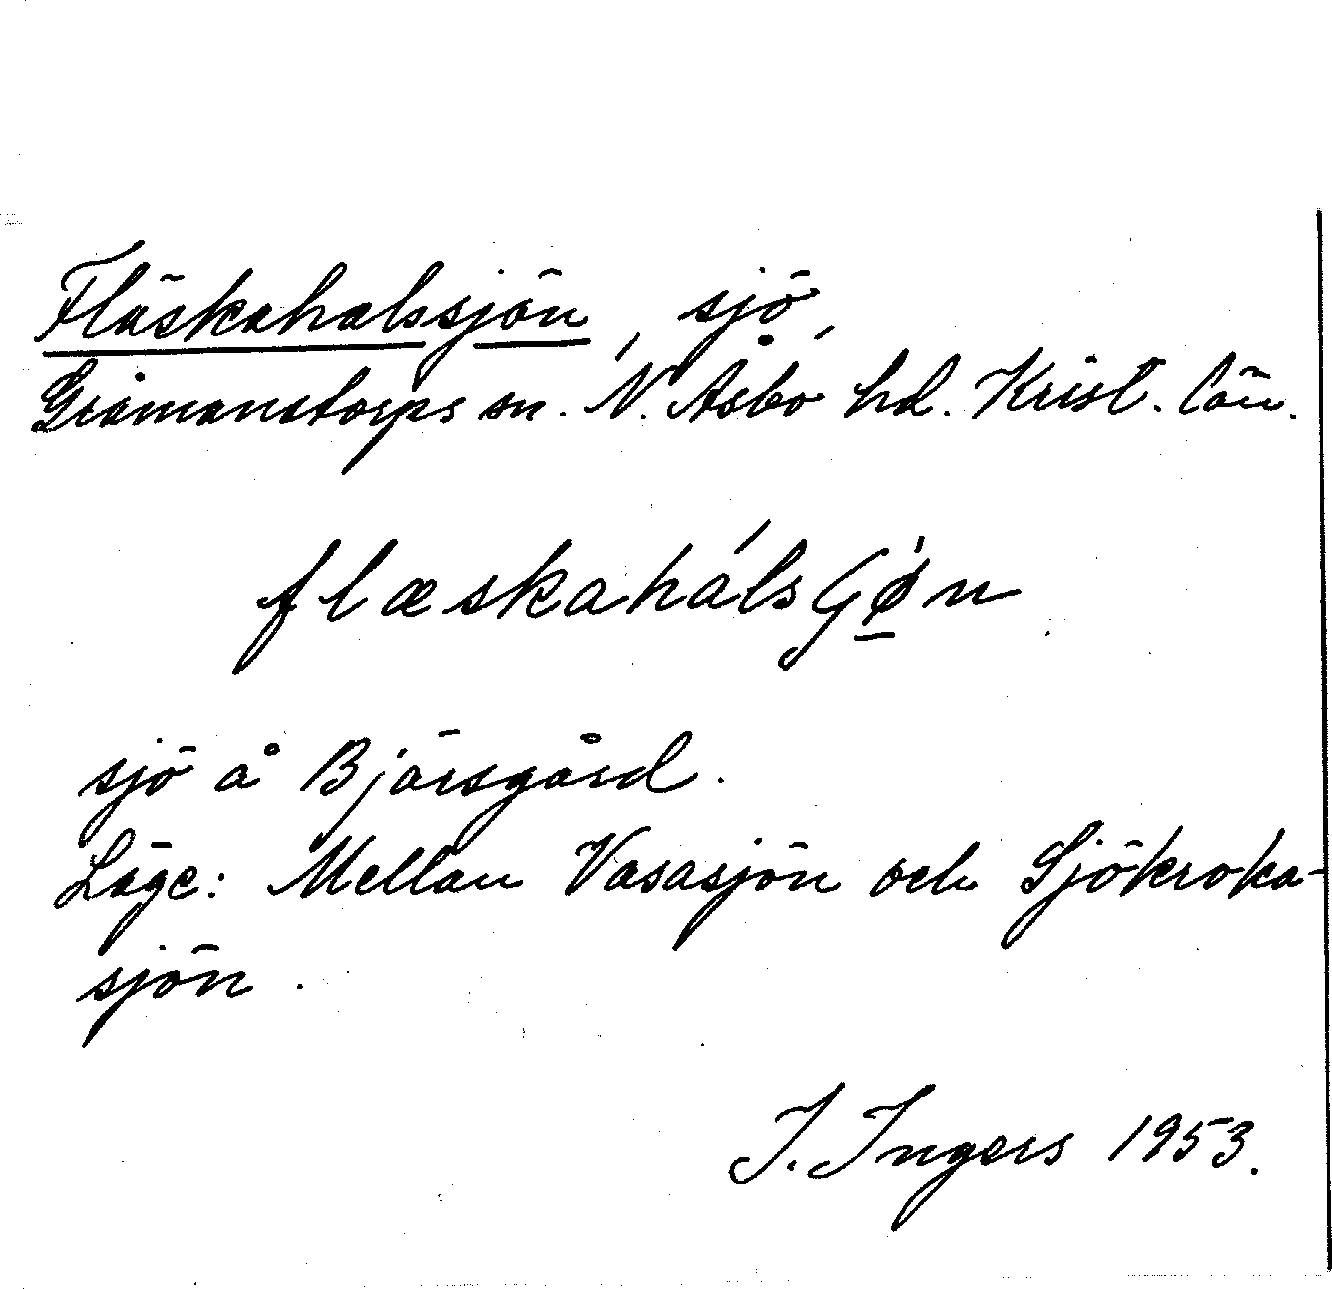 Fläskahalssjön, sjö,
Gråmanstorps sn. N. Åsbo hd. Krist. län.
flæskahálsɢǿ̱n
sjö å Bjärsgård.
Läge: Mellan Vasasjön och Sjökroka-
sjön.
I. Ingers 1953.